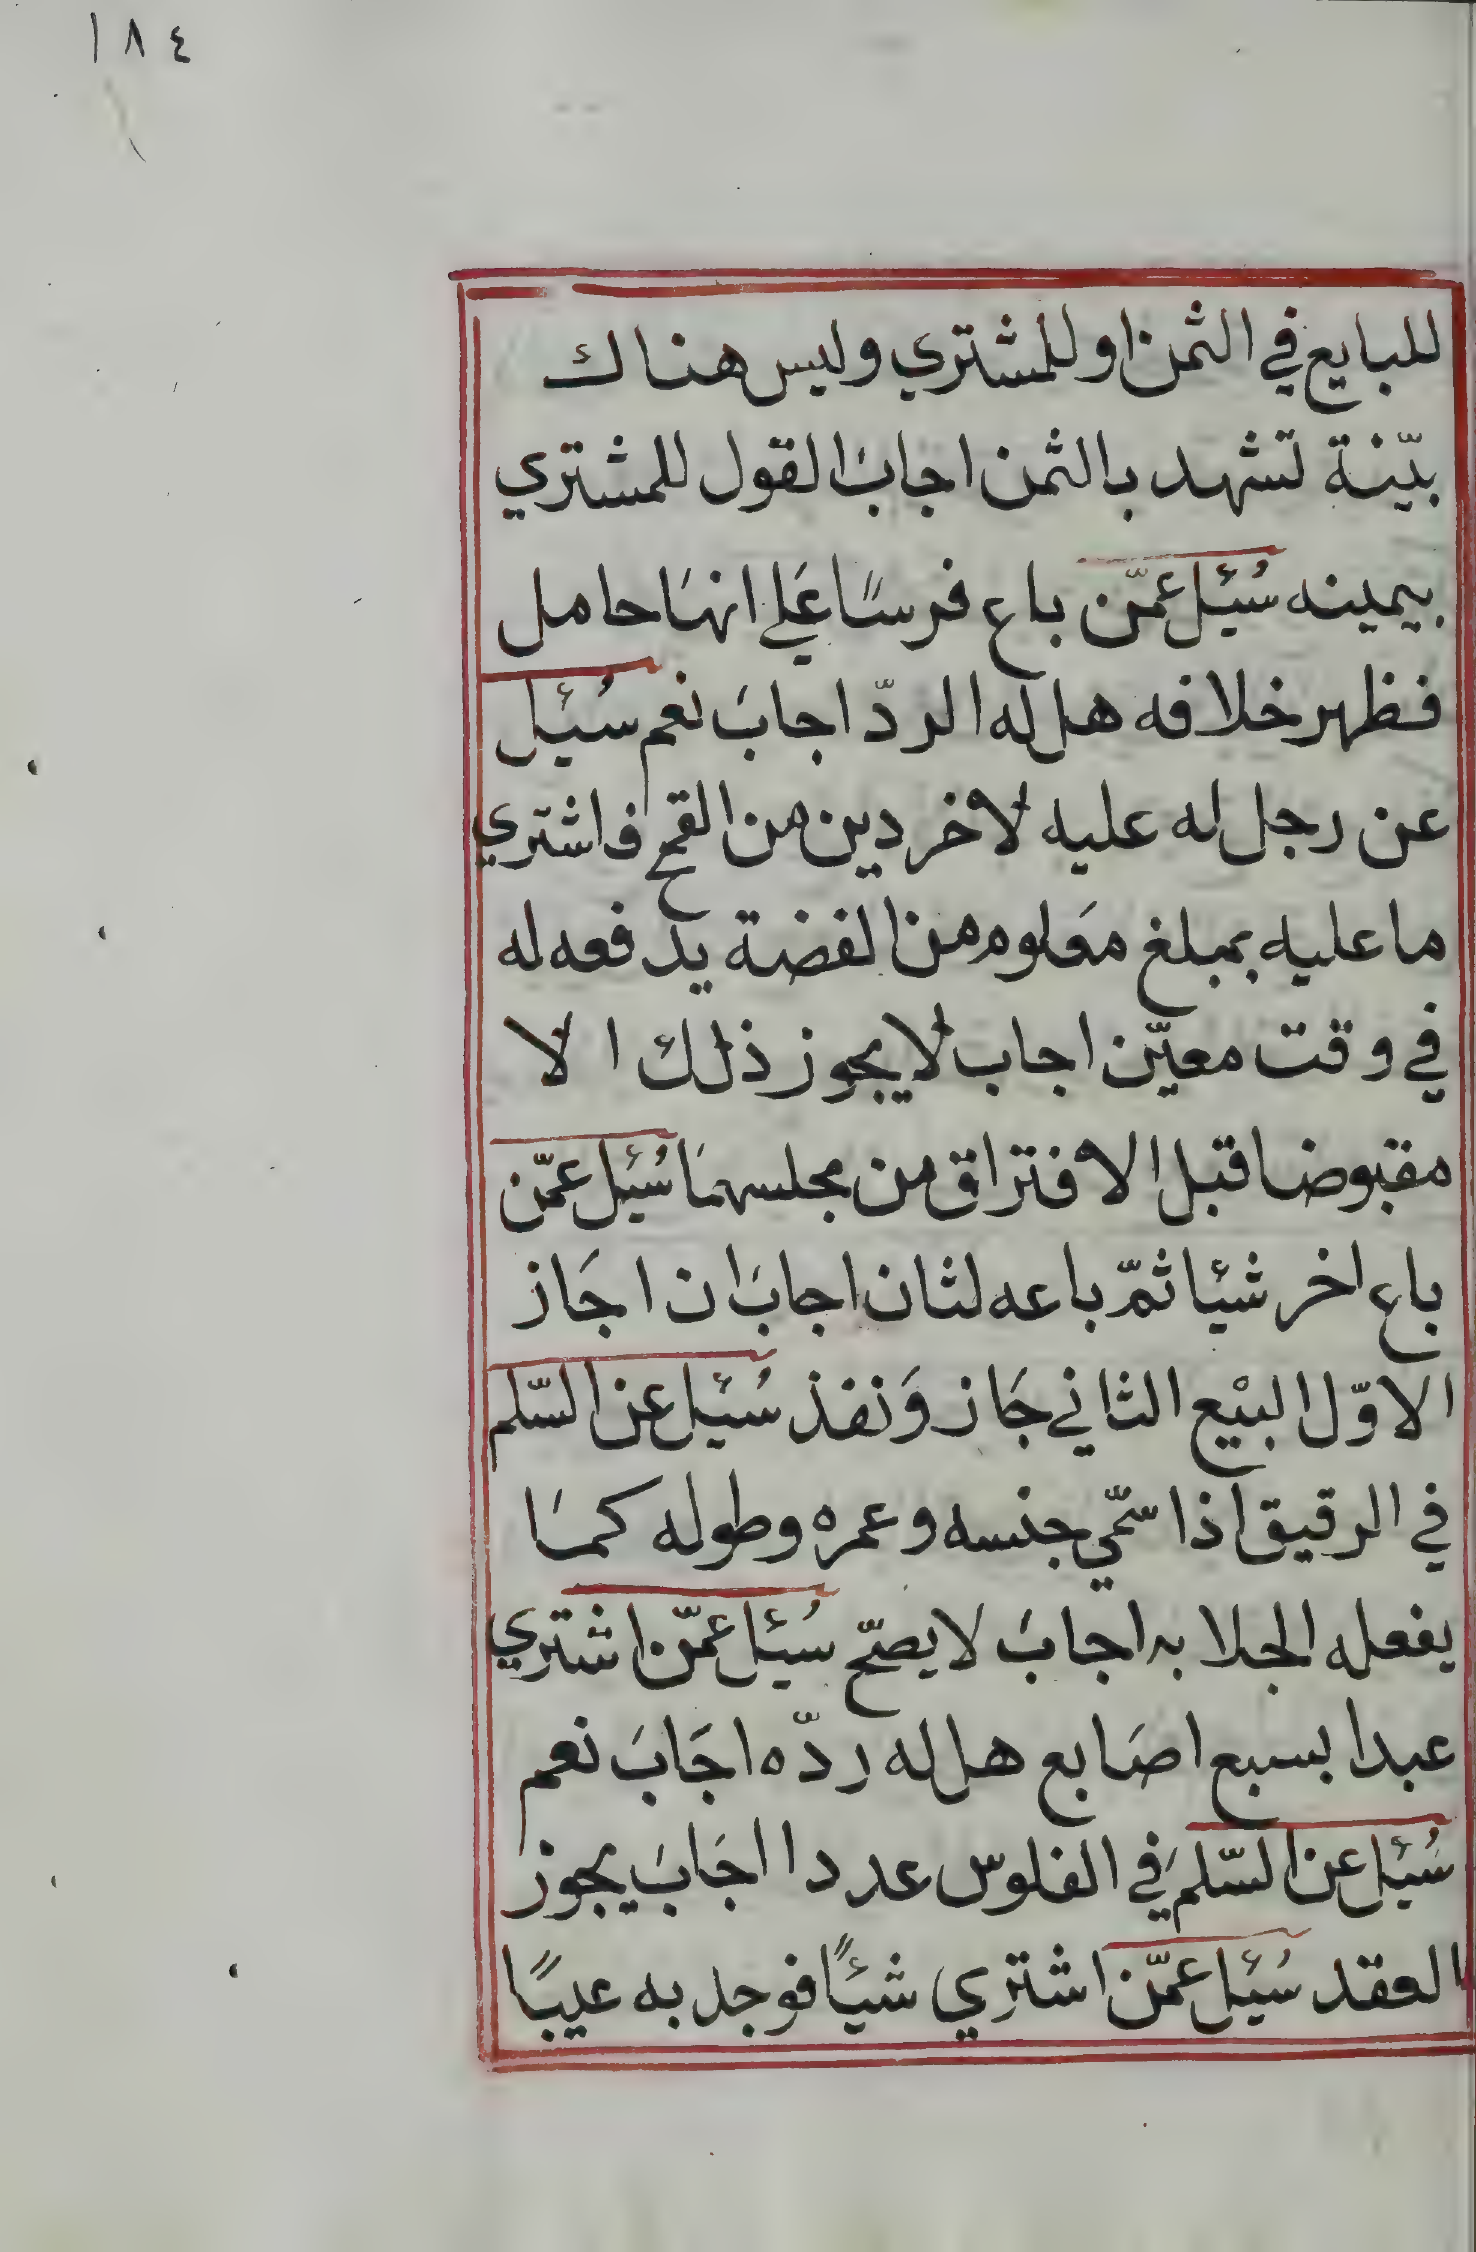 ١٨٤
للبايع في الثمن او للمشتري وليس هناك
بيّنة تشهد بالثمن اجابَ القول للمشتري
بيمينه سُئِل عمّن باع فرسًا عَلي انهَا حامل
فظهر خلافه هل له الردّ اجابَ نعم سُئِل
عن رجل له عليه لاخر دين من القمح فاشتري
ما عليه بمبلغ مَعلوم من الفضة يدفعه له
في وقت معيّن اجاب لا يجوز ذلك الا
مقبوضا قبل الافتراق من مجلسهمَا سُئِل عمّن
باع اخر شيئا ثمّ باعه لثان اجابَ ان اجَاز
الاوّل البيْع الثاني جَاز وَنفذ سُئِل عن السّلم
في الرقيق اذا سمّي جنسه وعمره وطوله كمَا
يفعله الجلابه اجابَ لا يصحّ سُئِل عمّن اشتري
عبدا بسبع اصَابع هل له ردّه اجَابَ نعم
سُئِل عن السّلمَ في الفلوس عددا اجَابَ يجوز
العقد سُئِل عمّن اشتري شيئًا فوجد به عيبًا